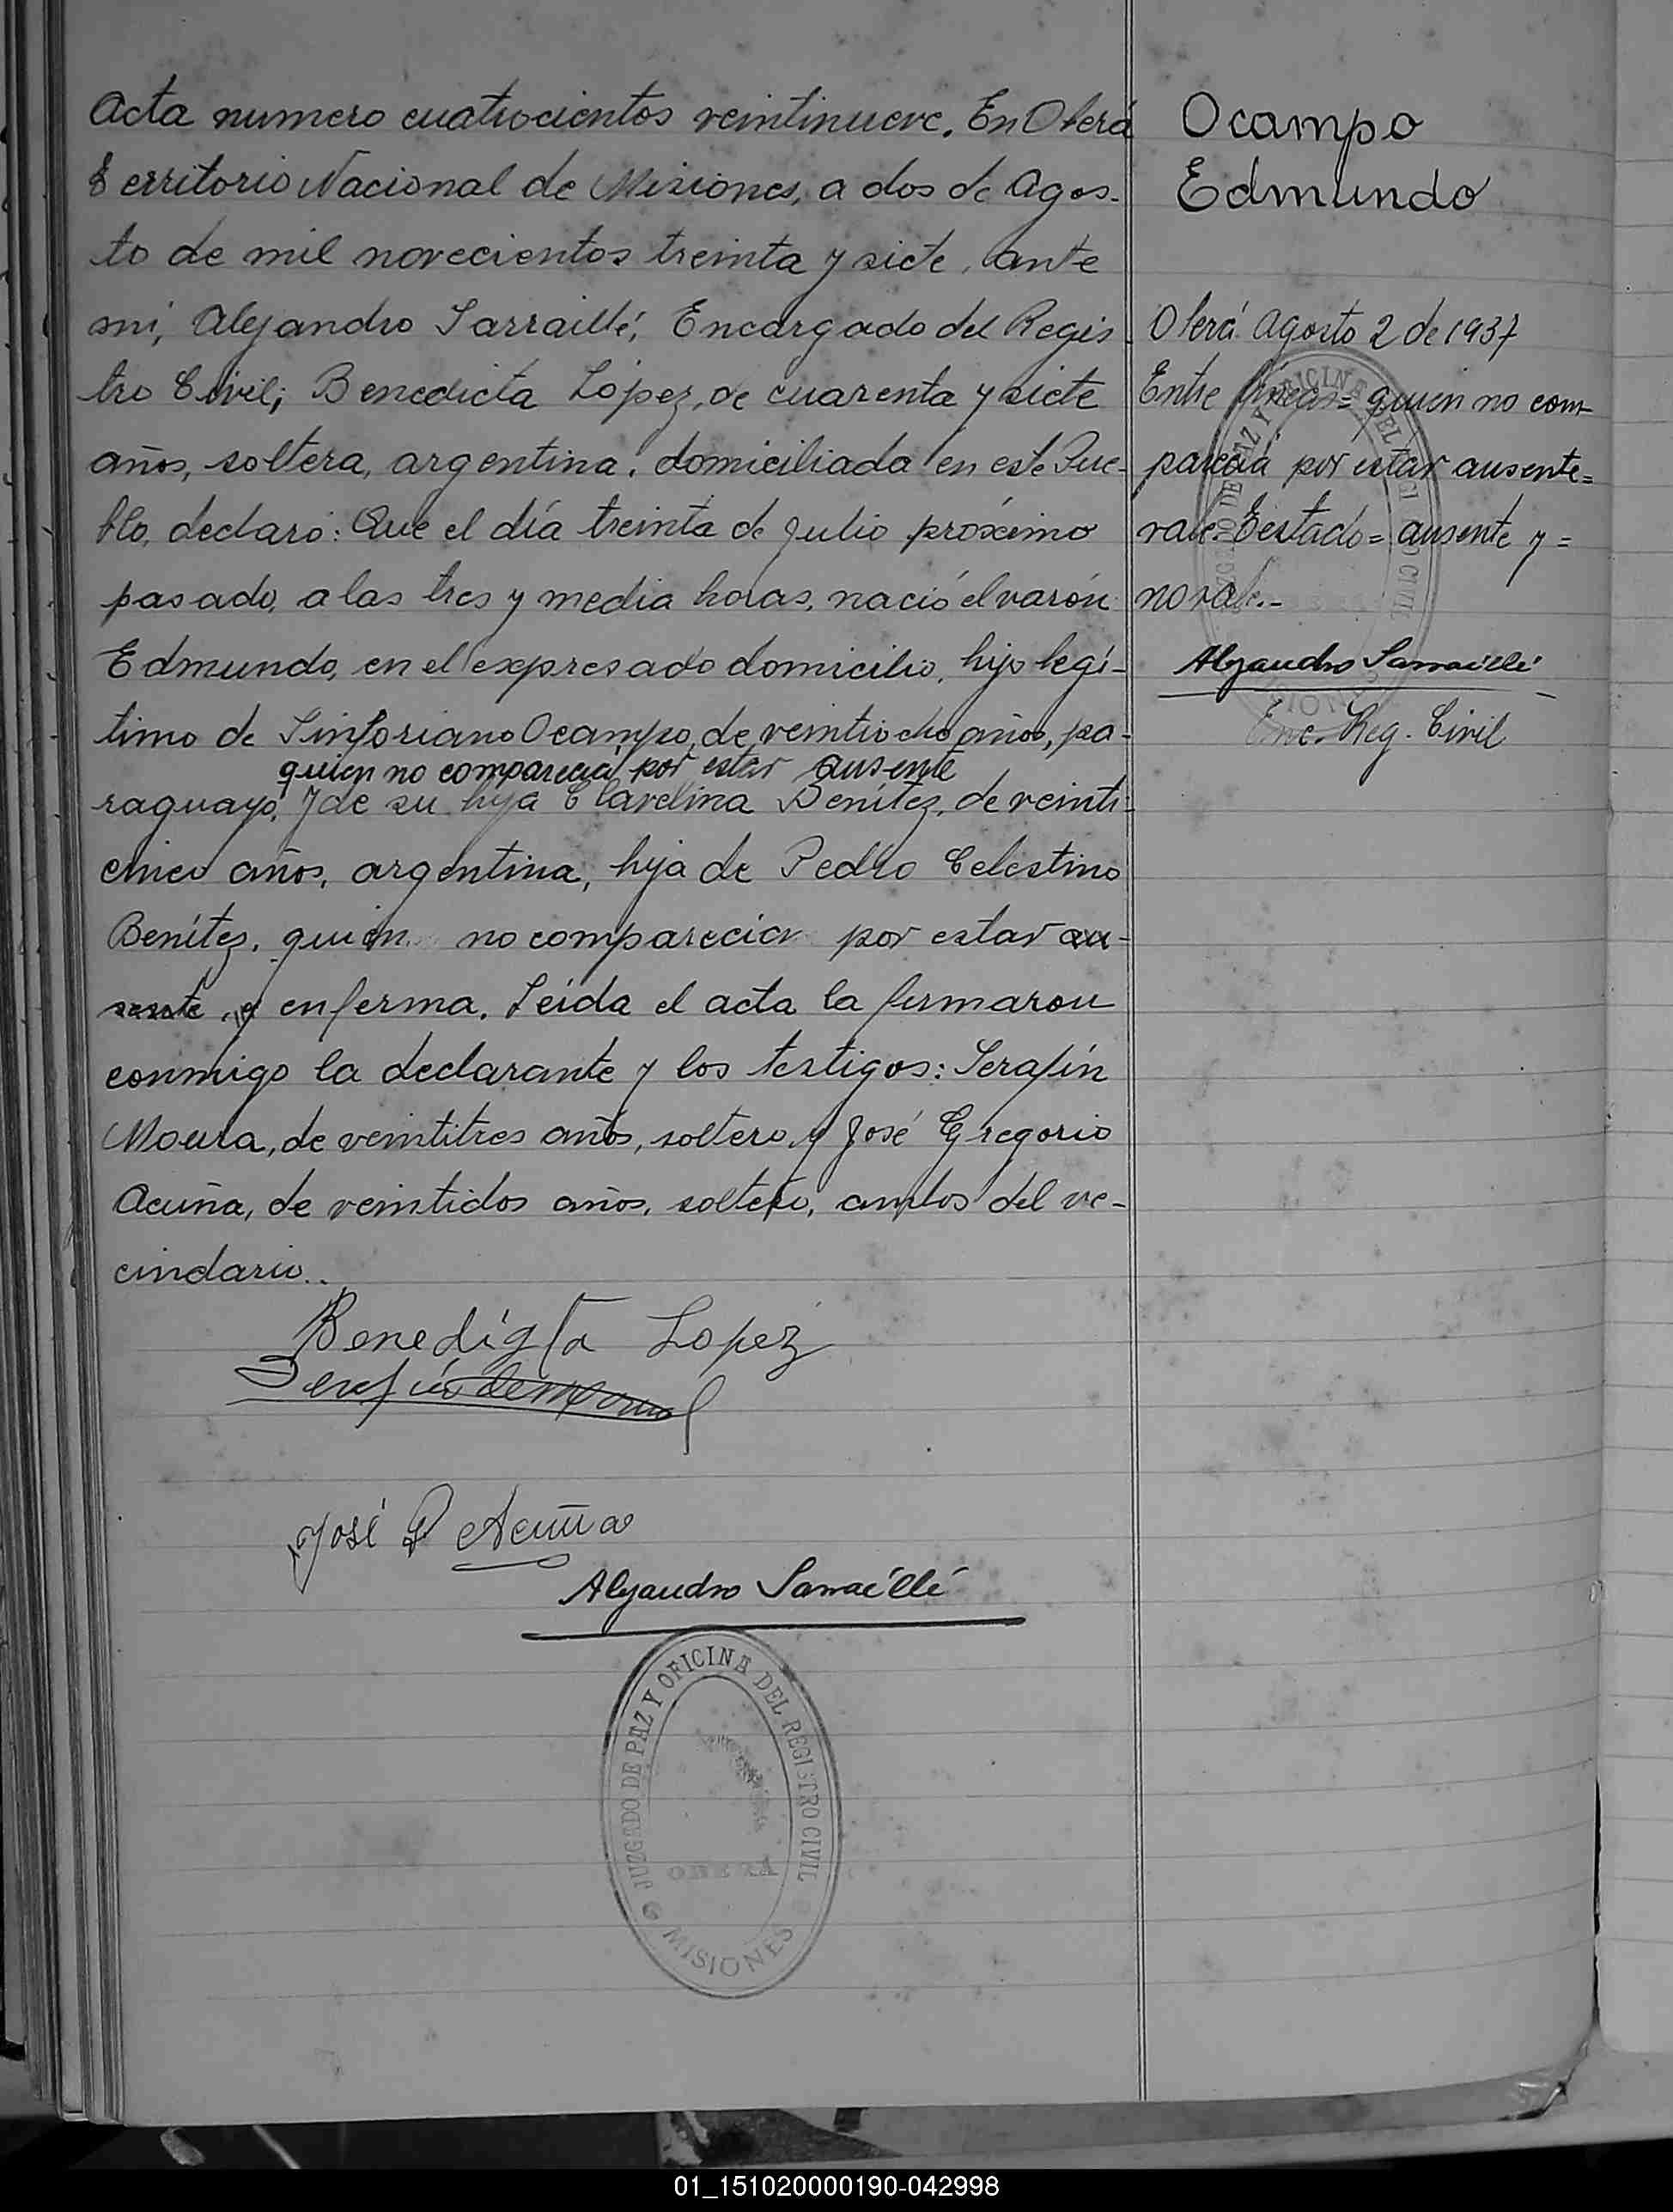 Acta numero cuatrocientos veintinueve. En Oberá
Territorio Nacional de Misiones, a dos de Agos-
to de mil novecientos treinta y siete, ante
mi, Alejandro Sarraillé, Encargado del Regis-
tro Civil; Benedicta López, de cuarenta y siete
años, soltera, argentina, domiciliada en este Pue-
blo, declaró: Que el día treinta de Julio próximo
pasado, a las tres y media horas, nació el varón
Edmundo, en el expresado domicilio, hijo legí-
timo de Sinforiano Ocampo, de veintiocho años, pa-
quien no comparecia por estar ausente
raguayo, y de su hija Clavelina Benítez, de veinti-
cinco años, argentina, hija de Pedro Celestino
Benítez, quien no comparecia por estar au-
sente y enferma. Leida el acta la firmaron
conmigo la declarante y los testigos: Serafín
Moura, de veintitres años, soltero y José Gregorio
Acuña, de veintidos años, soltero, ambos del ve-
cindario..
Benedigta Lopez
José G Acuña
Alejandro Sarraillé
JUZGADO DE PAZ Y OFICINA DEL REGISTRO CIVIL
OBERA
MISIONES
Ocampo
Edmundo
Oberá Agosto 2 de 1937
Entre líneas= quien no com-
parecia por estar ausente=
vale. Testado= ausente y=
no vale.-
Alejandro Sarraillé
Enc. Reg. Civil
01_151020000190-042998